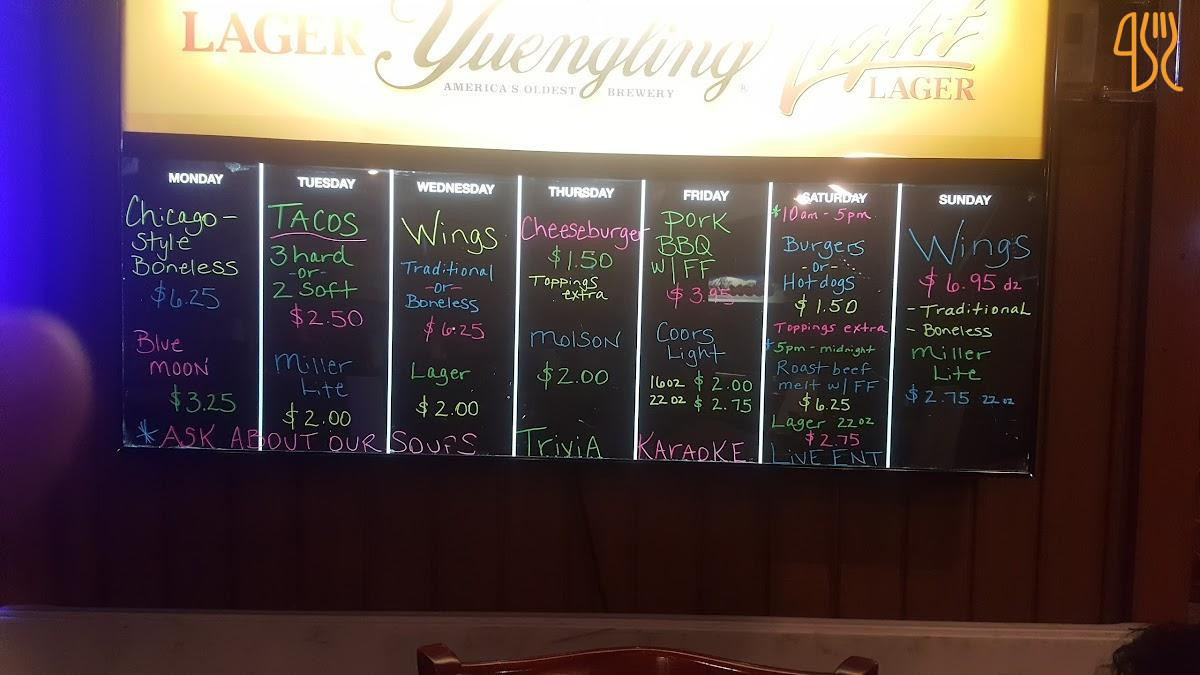 LAGER Yuengling Light
AMERICA'S OLDEST BREWERY ® LAGER
MONDAY
Chicago-
Style
Boneless
$6.25
Blue
MOON
$3.25
TUESDAY
TACOS
3 hard
-or-
2 Soft
$2.50
Miller
Lite
$2.00
WEDNESDAY
Wings
Traditional
-or-
Boneless
$6.25
Lager
$2.00
THURSDAY
Cheeseburger
$1.50
Toppings
extra
Molson
$2.00
TriviA
FRIDAY
PORK
BBQ
W/FF
$3.95
Coors
Light
16oz $2.00
22oz $2.75
KARAOKE
SATURDAY
*10am-5pm
Burgers
-or-
Hotdogs
$1.50
Toppings extra
*5pm-midnight
Roast beef
melt w/FF
$6.25
Lager 22oz
$2.75
LiVE ENT
SUNDAY
Wings
$6.95 dz
- Traditional
- Boneless
Miller
Lite
$2.75 22oz
*ASK ABOUT OUR SOUPS